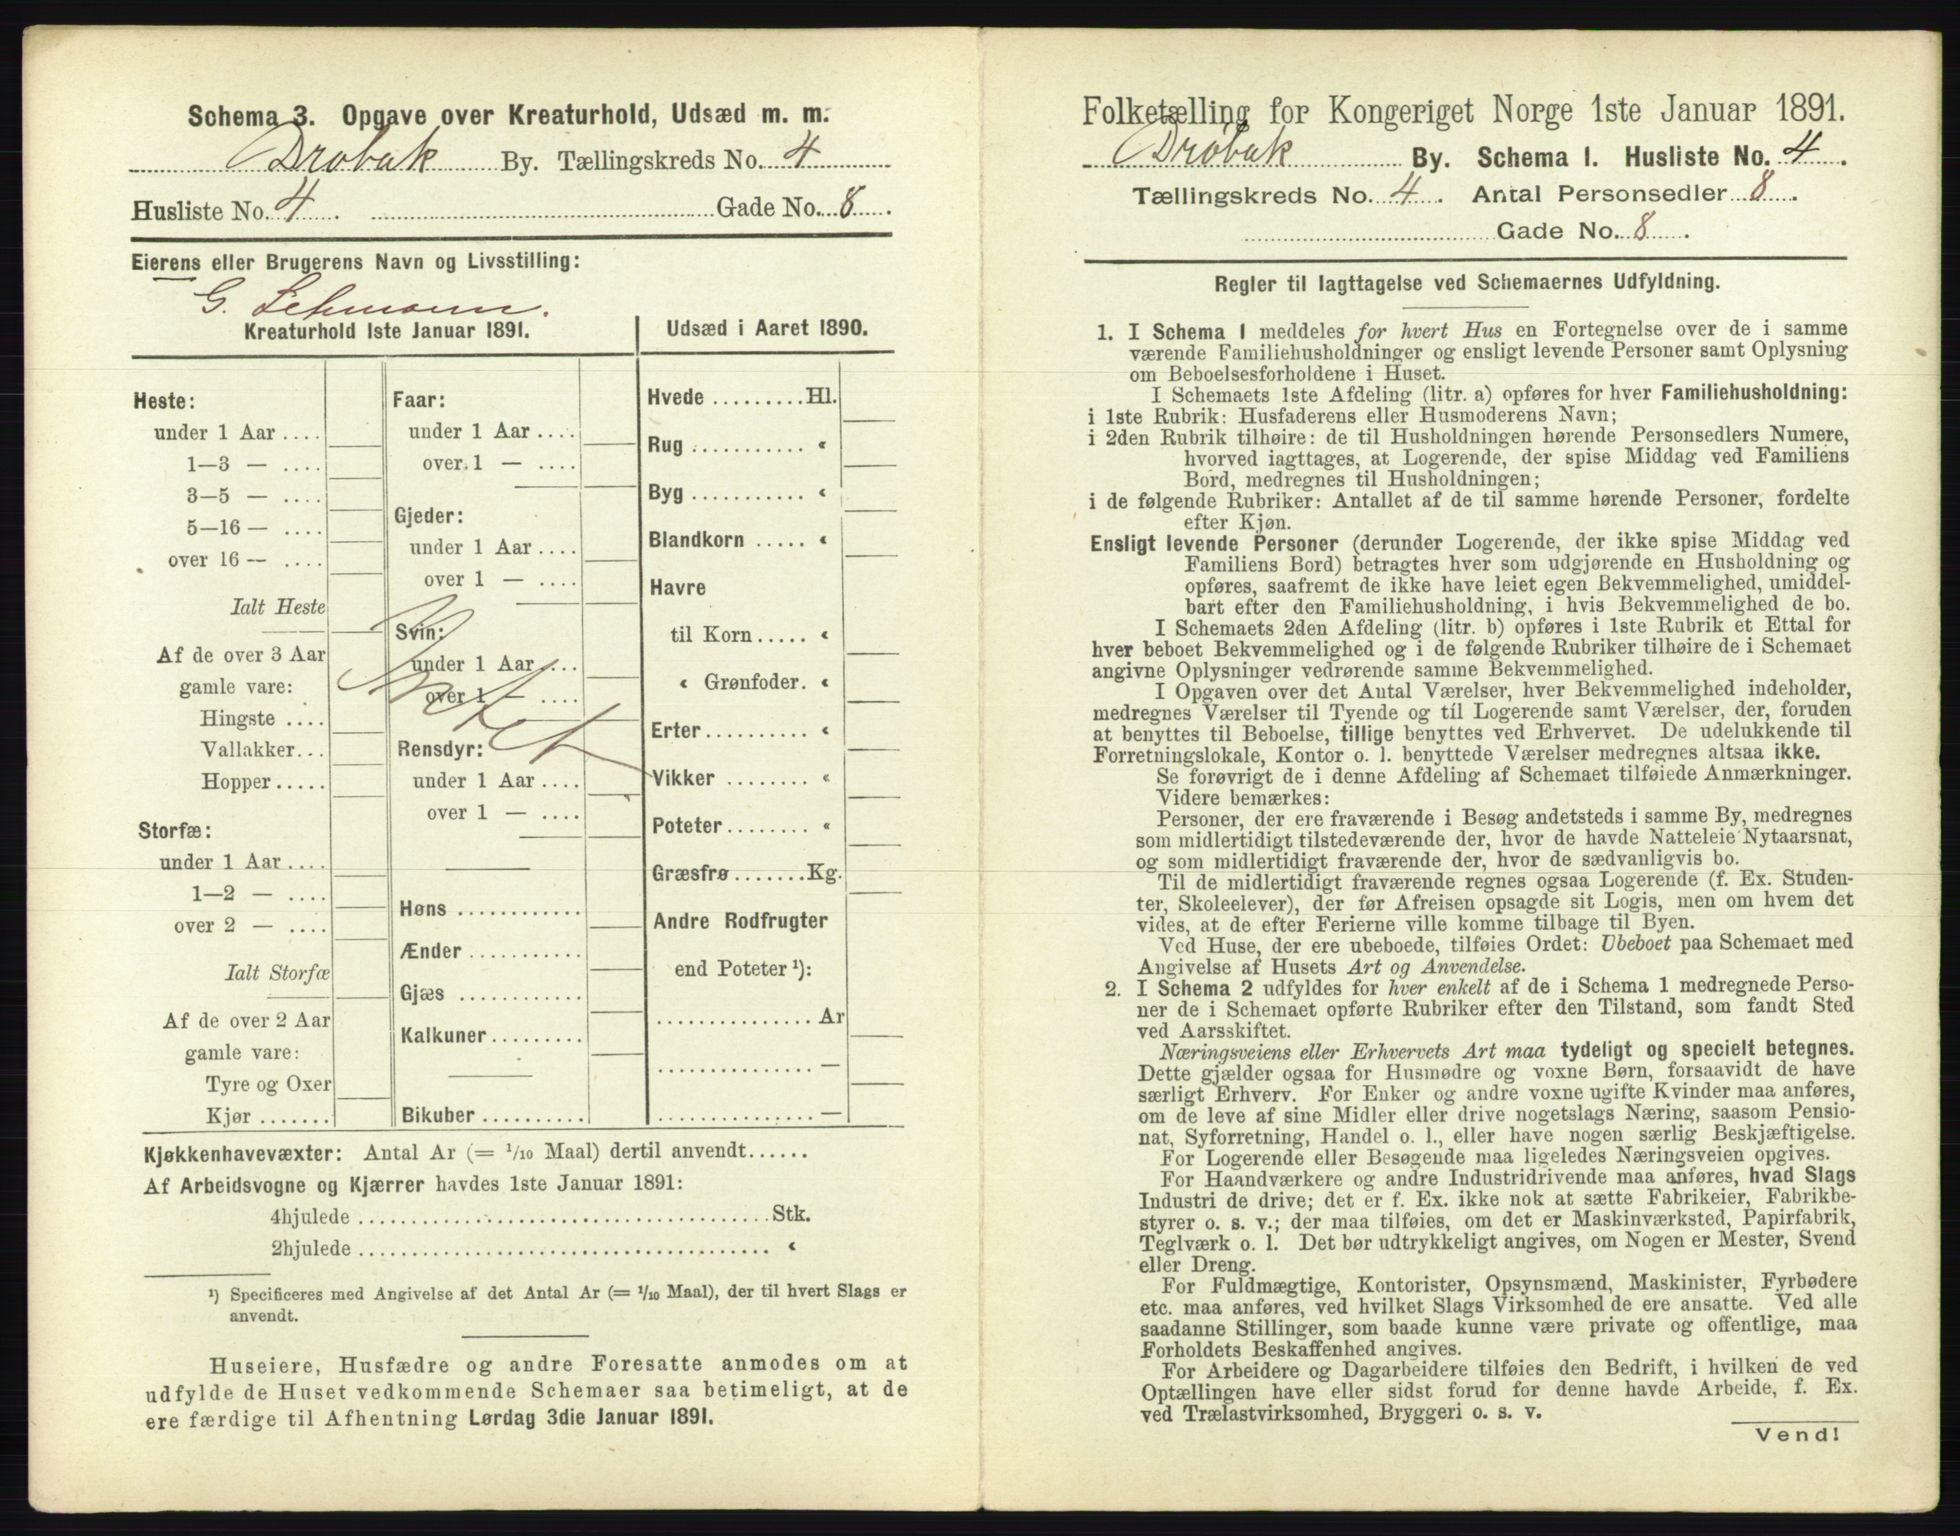 Schema 3. Opgave over Kreaturhold, Udsæd m. m.
Drøbak By. Tællingskreds No. 4
Husliste No. 4. Gade No. 8.
Eierens eller Brugerens Navn og Livsstilling:
G. Lehmann.
Kreaturhold 1ste Januar 1891.
Heste:
under 1 Aar ....
1—3 — ....
3—5 — ....
5—16 — ....
over 16 — ....
Ialt Heste
Af de over 3 Aar
gamle vare:
Hingste ....
Vallakker...
Hopper.....
Storfæ:
under 1 Aar....
1—2 — ....
over 2 — ....
Ialt Storfæ
Af de over 2 Aar
gamle vare:
Tyre og Oxer
Kjør .......
Faar:
under 1 Aar ....
over 1 — ....
Gjeder:
under 1 Aar....
over 1 — ....
Svin:
under 1 Aar ....
over 1 — ....
Intet
Rensdyr:
under 1 Aar ....
over 1 — ....
Høns ............
Ænder ...........
Gjæs ............
Kalkuner.........
Bikuber ..........
Udsæd i Aaret 1890.
Hvede .........Hl.
Rug ........... «
Byg ........... «
Blandkorn ..... «
Havre
til Korn ..... «
« Grønfoder. «
Erter.......... «
Vikker ........ «
Poteter........ «
Græsfrø.......Kg.
Andre Rodfrugter
end Poteter ¹):
............... Ar
............... —
............... —
Kjøkkenhavevæxter: Antal Ar (= 1/10 Maal) dertil anvendt......
Af Arbeidsvogne og Kjærrer havdes 1ste Januar 1891:
4hjulede ........................................Stk.
2hjulede ........................................ «
¹) Specificeres med Angivelse af det Antal Ar (= 1/10 Maal), der til hvert Slags er
anvendt.
Huseiere, Husfædre og andre Foresatte anmodes om at
udfylde de Huset vedkommende Schemaer saa betimeligt, at de
ere færdige til Afhentning Lørdag 3die Januar 1891.
Folketælling for Kongeriget Norge 1ste Januar 1891.
Drøbak By. Schema 1. Husliste No. 4.
Tællingskreds No. 4. Antal Personsedler 8.
Gade No. 8.
Regler til Iagttagelse ved Schemaernes Udfyldning.
1. I Schema 1 meddeles for hvert Hus en Fortegnelse over de i samme
værende Familiehusholdninger og ensligt levende Personer samt Oplysning
om Beboelsesforholdene i Huset.
I Schemaets 1ste Afdeling (litr. a) opføres for hver Familiehusholdning:
i 1ste Rubrik: Husfaderens eller Husmoderens Navn;
i 2den Rubrik tilhøire: de til Husholdningen hørende Personsedlers Numere,
hvorved iagttages, at Logerende, der spise Middag ved Familiens
Bord, medregnes til Husholdningen;
i de følgende Rubriker: Antallet af de til samme hørende Personer, fordelte
efter Kjøn.
Ensligt levende Personer (derunder Logerende, der ikke spise Middag ved
Familiens Bord) betragtes hver som udgjørende en Husholdning og
opføres, saafremt de ikke have leiet egen Bekvemmelighed, umiddel-
bart efter den Familiehusholdning, i hvis Bekvemmelighed de bo.
I Schemaets 2den Afdeling (litr. b) opføres i 1ste Rubrik et Ettal for
hver beboet Bekvemmelighed og i de følgende Rubriker tilhøire de i Schemaet
angivne Oplysninger vedrørende samme Bekvemmelighed.
I Opgaven over det Antal Værelser, hver Bekvemmelighed indeholder,
medregnes Værelser til Tyende og til Logerende samt Værelser, der, foruden
at benyttes til Beboelse, tillige benyttes ved Erhvervet. De udelukkende til
Forretningslokale, Kontor o. l. benyttede Værelser medregnes altsaa ikke.
Se forøvrigt de i denne Afdeling af Schemaet tilføiede Anmærkninger.
Videre bemærkes:
Personer, der ere fraværende i Besøg andetsteds i samme By, medregnes
som midlertidigt tilstedeværende der, hvor de havde Natteleie Nytaarsnat,
og som midlertidigt fraværende der, hvor de sædvanligvis bo.
Til de midlertidigt fraværende regnes ogsaa Logerende (f. Ex. Studen-
ter, Skoleelever), der før Afreisen opsagde sit Logis, men om hvem det
vides, at de efter Ferierne ville komme tilbage til Byen.
Ved Huse, der ere ubeboede, tilføies Ordet: Ubeboet paa Schemaet med
Angivelse af Husets Art og Anvendelse.
2. I Schema 2 udfyldes for hver enkelt af de i Schema 1 medregnede Perso-
ner de i Schemaet opførte Rubriker efter den Tilstand, som fandt Sted
ved Aarsskiftet.
Næringsveiens eller Erhvervets Art maa tydeligt og specielt betegnes.
Dette gjælder ogsaa for Husmødre og voxne Børn, forsaavidt de have
særligt Erhverv. For Enker og andre voxne ugifte Kvinder maa anføres,
om de leve af sine Midler eller drive nogetslags Næring, saasom Pensio-
nat, Syforretning, Handel o. l., eller have nogen særlig Beskjæftigelse.
For Logerende eller Besøgende maa ligeledes Næringsveien opgives.
For Haandværkere og andre Industridrivende maa anføres, hvad Slags
Industri de drive; det er f. Ex. ikke nok at sætte Fabrikeier, Fabrikbe-
styrer o. s. v.; der maa tilføies, om det er Maskinværksted, Papirfabrik,
Teglværk o. l. Det bør udtrykkeligt angives, om Nogen er Mester, Svend
eller Dreng.
For Fuldmægtige, Kontorister, Opsynsmænd, Maskinister, Fyrbødere
etc. maa anføres, ved hvilket Slags Virksomhed de ere ansatte. Ved alle
saadanne Stillinger, som baade kunne være private og offentlige, maa
Forholdets Beskaffenhed angives.
For Arbeidere og Dagarbeidere tilføies den Bedrift, i hvilken de ved
Optællingen have eller sidst forud for denne havde Arbeide, f. Ex.
ved Trælastvirksomhed, Bryggeri o. s. v.
Vend!